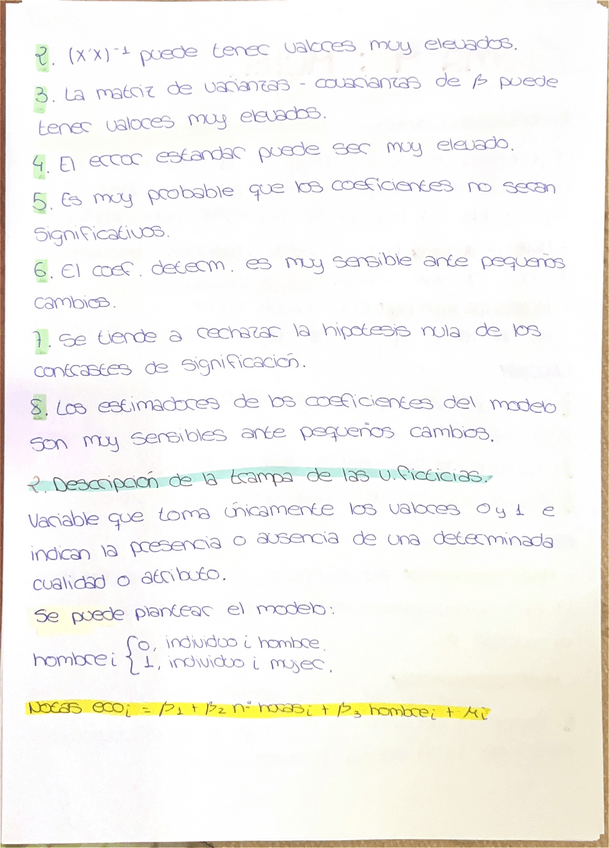 2. (X'X)⁻¹ puede tener valores muy elevados.
3. La matriz de varianzas - covarianzas de β puede
tener valores muy elevados.
4. El error estandar puede ser muy elevado.
5. Es muy probable que los coeficientes no sean
significativos.
6. El coef. determ. es muy sensible ante pequeños
cambios.
7. Se tiende a rechazar la hipotesis nula de los
contrastes de significación.
8. Los estimadores de los coeficientes del modelo
son muy sensibles ante pequeños cambios.
2. Descripción de la trampa de las v. ficticias.
Variable que toma únicamente los valores 0 y 1 e
indican la presencia o ausencia de una determinada
cualidad o atributo.
Se puede plantear el modelo:
hombre i { 0, individuo i hombre.
1, individuo i mujer.
Notas eco i = β1 + β2 nº horas i + β3 hombre i + μ i